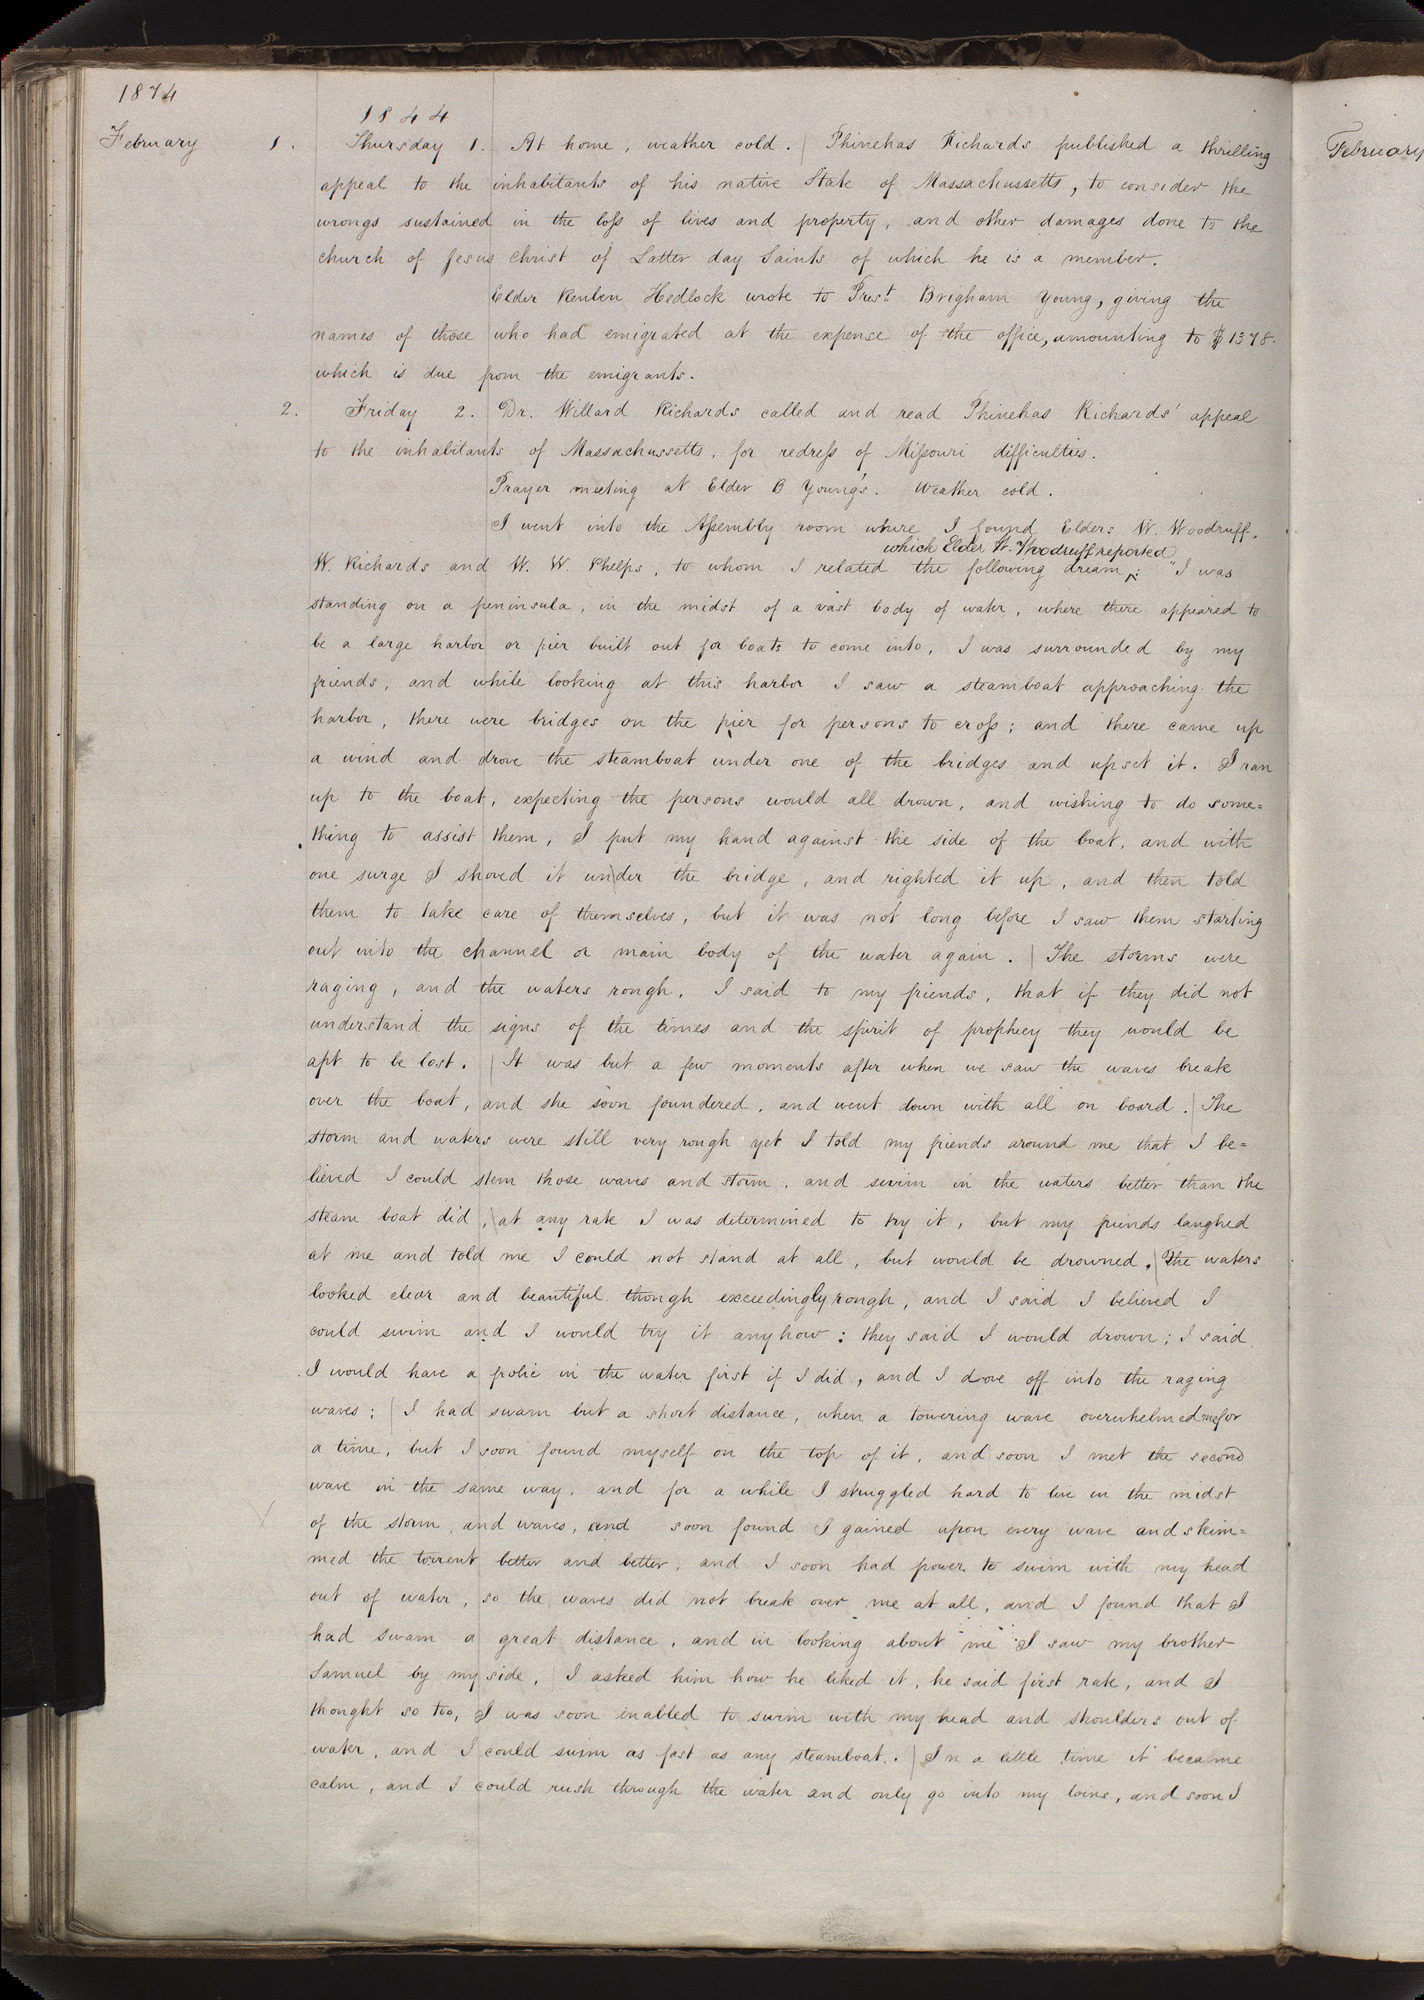 1874
1844
February 1. Thursday 1. At home, weather cold. | Phinehas Richards published a thrilling
appeal to the inhabitants of his native State of Massachussetts, to consider the
wrongs sustained in the loss of lives and property, and other damages done to the
church of Jesus Christ of Latter day Saints of which he is a member.
Elder Reuben Hedlock wrote to Prest. Brigham Young, giving the
names of those who had emigrated at the expense of the office, amounting to $1378.
which is due from the emigrants.
2. Friday 2. Dr. Willard Richards called and read Phinehas Richards' appeal
to the inhabitants of Massachussetts, for redress of Missouri difficulties.
Prayer meeting at Elder B Young's. Weather cold.
I went into the Assembly room where I found Elders W. Woodruff,
which Elder W. Woodruff reported
W. Richards and W. W. Phelps, to whom I related the following dream^: "I was
standing on a peninsula, in the midst of a vast body of water, where there appeared to
be a large harbor or pier built out for boats to come into, I was surrounded by my
friends, and while looking at this harbor I saw a steamboat approaching the
harbor, there were bridges on the pier for persons to cross; and there came up
a wind and drove the steamboat under one of the bridges and upset it. I ran
up to the boat, expecting the persons would all drown, and wishing to do some=
thing to assist them, I put my hand against the side of the boat, and with
one surge I shoved it under the bridge, and righted it up, and then told
them to take care of themselves, but it was not long before I saw them starting
out into the channel or main body of the water again. | The storms were
raging, and the waters rough. I said to my friends, that if they did not
understand the signs of the times and the spirit of prophecy they would be
apt to be lost. | It was but a few moments after when we saw the waves break
over the boat, and she soon foundered, and went down with all on board. | The
storm and waters were still very rough yet I told my friends around me that I be=
lieved I could stem those waves and storm, and swim in the waters better than the
steam boat did, | at any rate I was determined to try it, but my friends laughed
at me and told me I could not stand at all, but would be drowned. | The waters
looked clear and beautiful though exceedingly rough, and I said I believed I
could swim and I would try it anyhow: they said I would drown; I said,
I would have a frolic in the water first if I did, and I dove off into the raging
waves; | I had swam but a short distance, when a towering wave overwhelmed me for
a time, but I soon found myself on the top of it, and soon I met the second
wave in the same way, and for a while I struggled hard to live in the midst
of the storm, and waves, and soon found I gained upon every wave and skim=
med the torrent better and better, and I soon had power to swim with my head
out of water, so the waves did not break over me at all, and I found that I
had swam a great distance, and in looking about me I saw my brother
Samuel by my side, | I asked him how he liked it, he said first rate, and I
thought so too, I was soon enabled to swim with my head and shoulders out of
water, and I could swim as fast as any steamboat. | In a little time it became
calm, and I could rush through the water and only go into my loins, and soon I
February